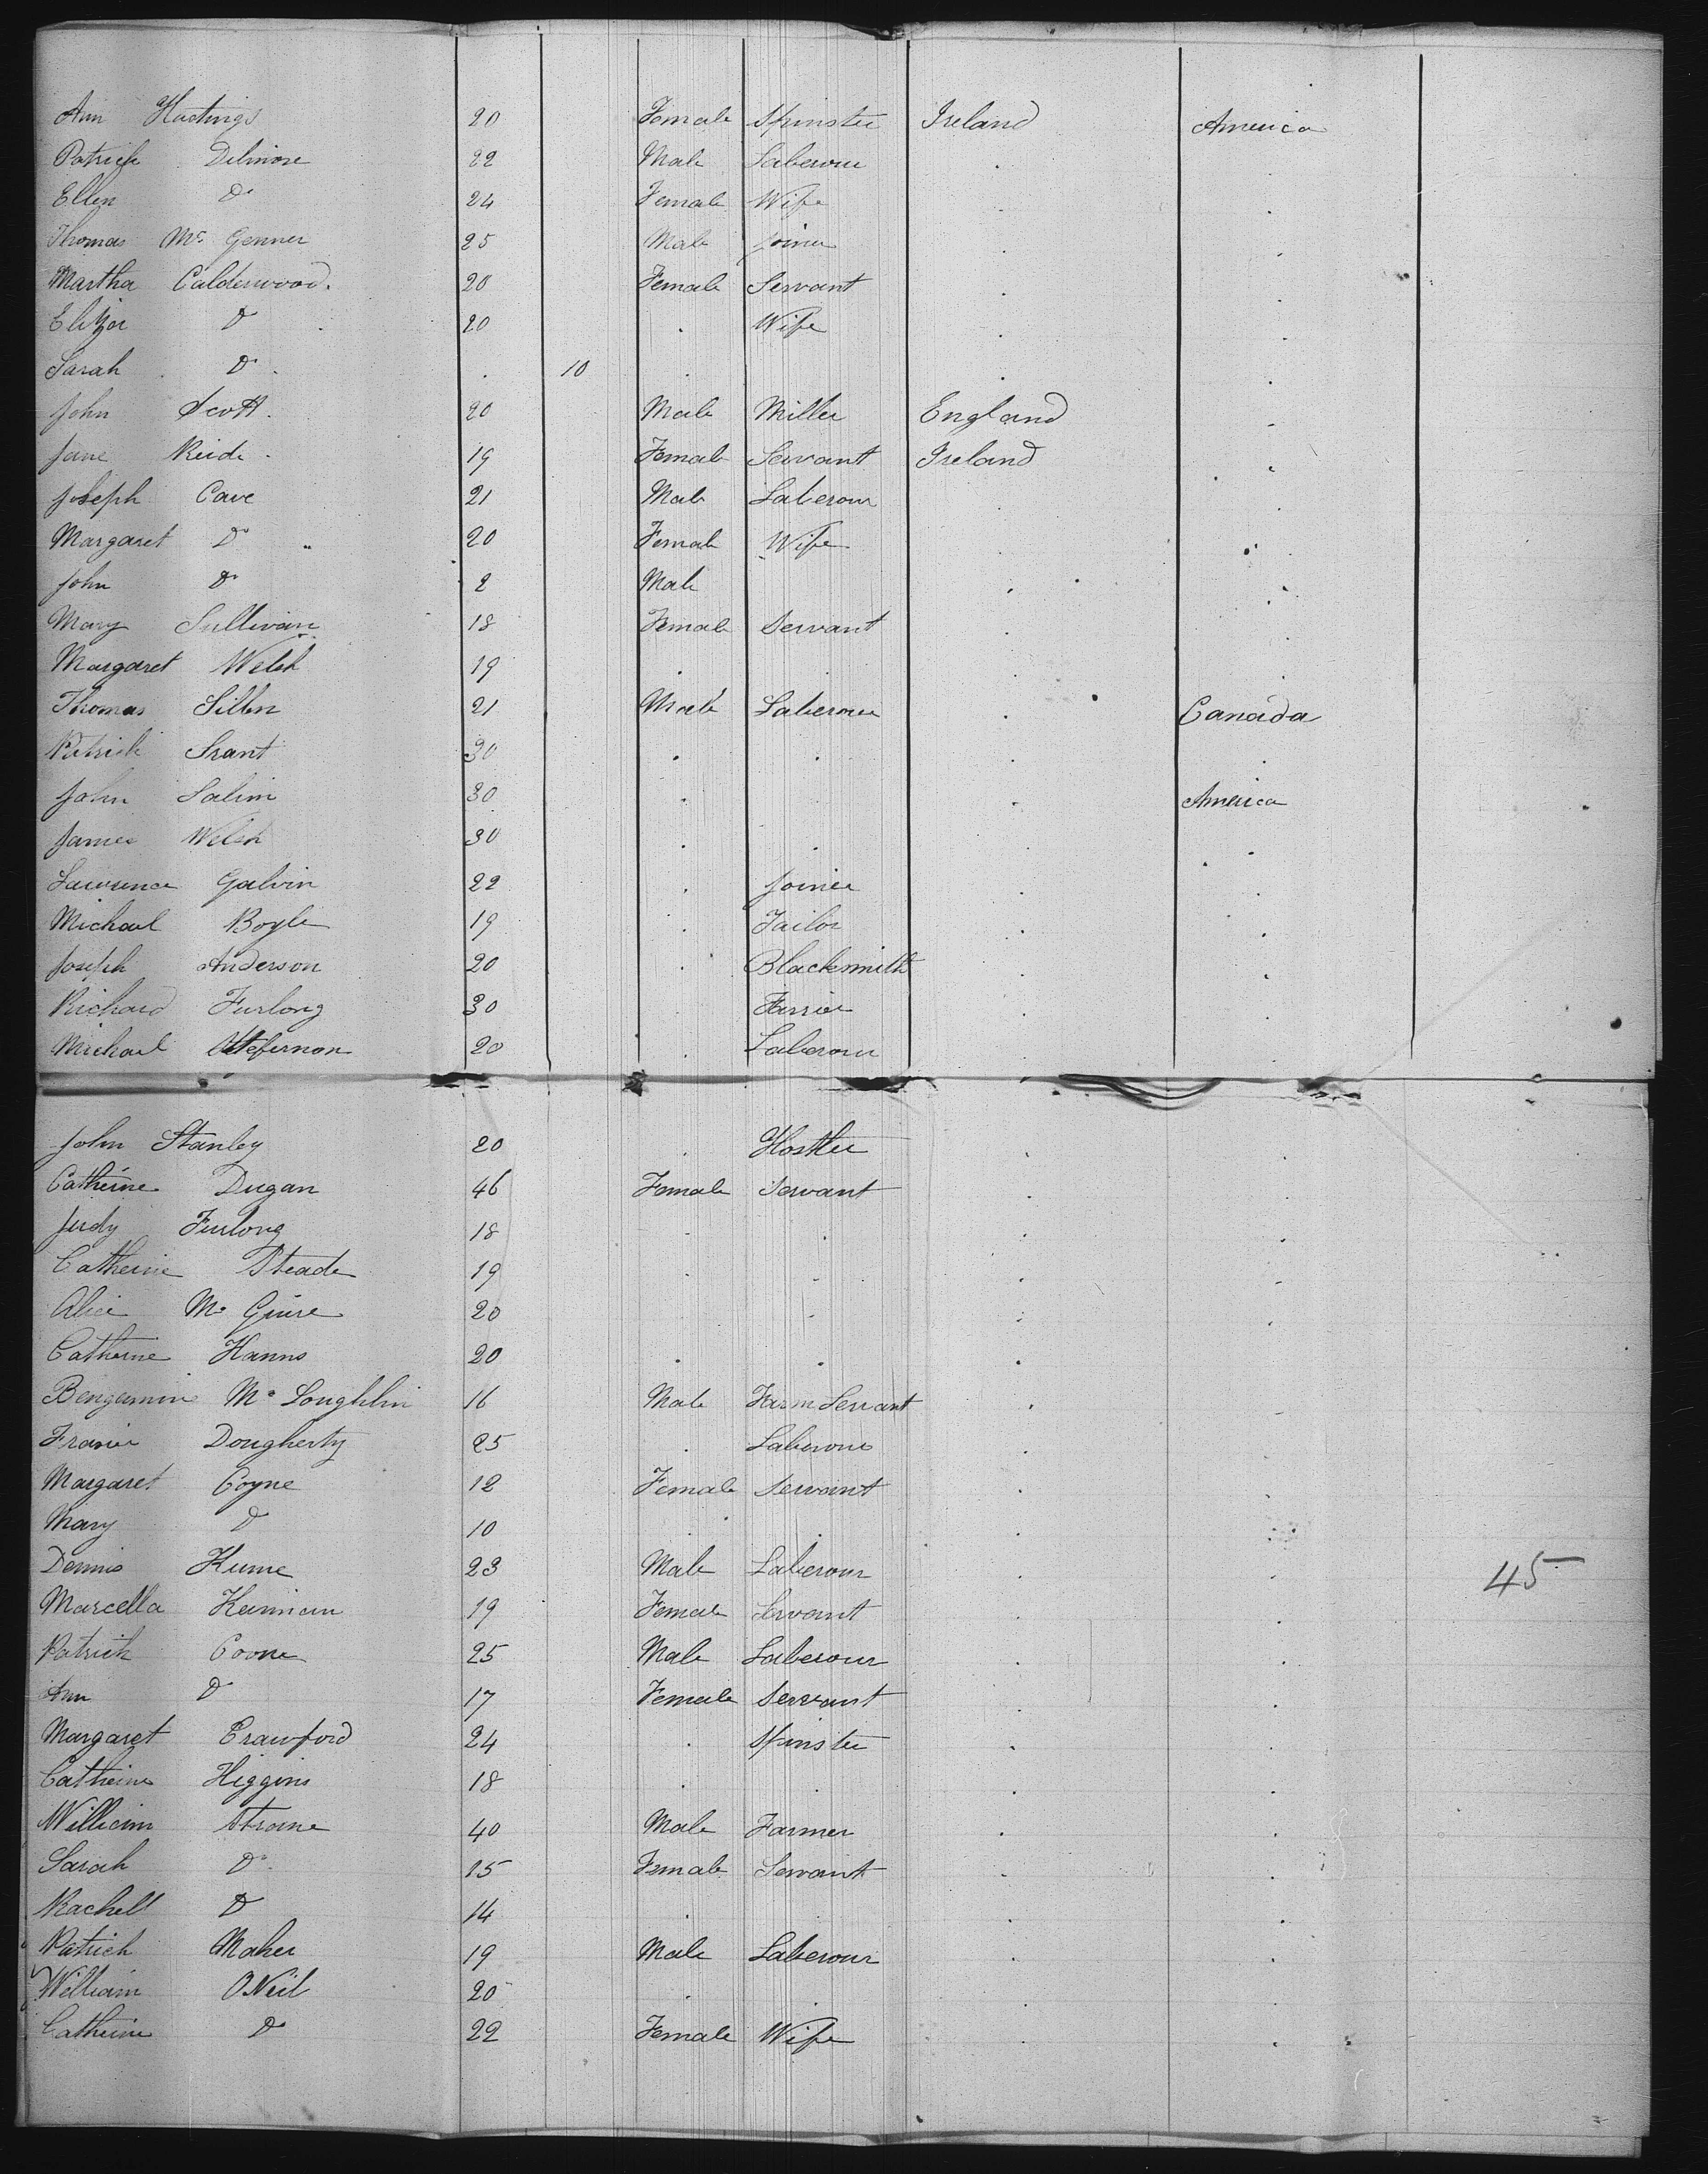 Ann Hastings 20 Female Spinster Ireland America
Patrick Delmore 22 Male Laberour . .
Ellen Do 24 Female Wife . .
Thomas Mc Genner 25 Male Joiner . .
Martha Calderwood. 20 Female Servant . .
Eliza Do 20 . Wife . .
Sarah Do . 10 . . .
John Scott. 20 Male Miller England .
Jane Reide. 19 Female Servant Ireland .
Joseph Cave 21 Male Laberour . .
Margaret Do 20 Female Wife . .
John Do 2 Male . .
Mary Sullivan 18 Female Servant . .
Margaret Welsh 19 . . .
Thomas 21 Male Laberour . Canada
Patrick 30 . . . .
John 30 . . America
James Welsh 30 . . . .
Lawrence Galvin 22 . Joiner . .
Michael Boyle 19 . Tailor . .
Joseph Anderson 20 . Blacksmith .
Richard Furlong 30 Farrier . .
Michael 20 . Laberour . .
John Stanley 20 . Hostler . .
Catherine Dugan 46 Female Servant . .
Judy Furlong 18 . . . .
Catherine Steade 19 . . . .
Alice Mc Guire 20 . . . .
Catherine Hanns 20 . . .
Bengamin Mc Loughlin 16 Male Farm Servant . .
Dougherty 25 . Laberour . .
Margaret Coyne 12 Female Servant . .
Mary Do 10 . . . .
Dennis Kume 23 Male Laberour . . 45
Marcella 19 Female Servant . .
Patrick Coone 25 Male Laberour . .
Ann Do 17 Female Servant . .
Margaret Crawford 24 . Spinster . .
Catherine Higgins 18 . . . .
William Strane 40 Male Farmer . .
Sarah Do 15 Female Servant . .
Rachell Do 14 . . . .
Patrick Maher 19 Male Laberour . .
William ONeil 20 . . . .
Catherine Do 22 Female Wife . .